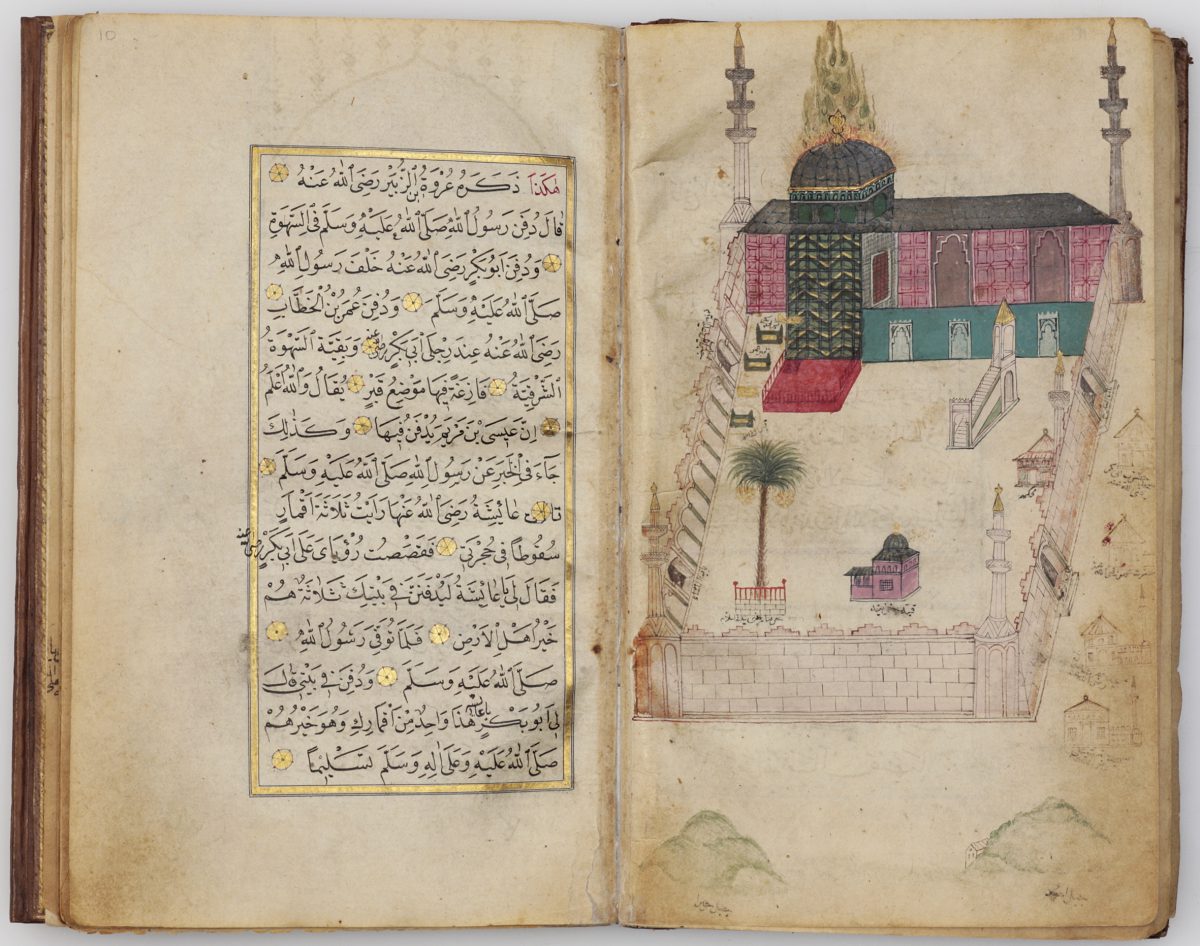 هٰكَذَا ذَكَرَهُ عُرْوَةُ بْنُ الزُّبَيْرِ رَضِيَ اللّٰهُ عَنْهُ
قَالَ دُفِنَ رَسُولُ اللّٰهِ صَلَّى اللّٰهُ عَلَيْهِ وَسَلَّمَ فِي السَّهْوَةِ
وَدُفِنَ اَبُو بَكْرٍ رَضِيَ اللّٰهُ عَنْهُ خَلْفَ رَسُولِ اللّٰهِ
صَلَّى اللّٰهُ عَلَيْهِ وَسَلَّمَ وَدُفِنَ عُمَرُ بْنُ الْخَطَّابِ
رَضِيَ اللّٰهُ عَنْهُ عِنْدَ رِجْلَيْ اَبِي بَكْرٍ رضي عنه وَبَقِيَّةُ السَّهْوَةِ
الشَّرْقِيَّةُ فَارِغَةٌ فِيهَا مَوْضِعُ قَبْرٍ يُقَالُ وَاللّٰهُ اَعْلَمُ
اِنَّ عِيسَى بْنَ مَرْيَمَ يُدْفَنُ فِيهَا وَكَذٰلِكَ
جَاءَ فِي الْخَبَرِ عَنْ رَسُولِ اللّٰهِ صَلَّى اللّٰهُ عَلَيْهِ وَسَلَّمَ
قَالَتْ عَائِشَةُ رَضِيَ اللّٰهُ عَنْهَا رَاَيْتُ ثَلَاثَةَ اَقْمَارٍ
سُقُوطًا فِي حُجْرَتِي فَقَصَصْتُ رُؤْيَايَ عَلَى اَبِي بَكْرٍ رضي عنه
فَقَالَ لِي يَا عَائِشَةُ لَيُدْفَنَنَّ فِي بَيْتِكِ ثَلَاثَةٌ هُمْ
خَيْرُ اَهْلِ الْاَرْضِ فَلَمَّا تُوُفِّيَ رَسُولُ اللّٰهِ
صَلَّى اللّٰهُ عَلَيْهِ وَسَلَّمَ وَدُفِنَ فِي بَيْتِي قَالَ
لِي اَبُو بَكْرٍ يا عائشة هٰذَا وَاحِدٌ مِنْ اَقْمَارِكِ وَهُوَ خَيْرُهُمْ
صَلَّى اللّٰهُ عَلَيْهِ وَعَلٰى اٰلِهِ وَسَلَّمَ تَسْلِيمًا
10